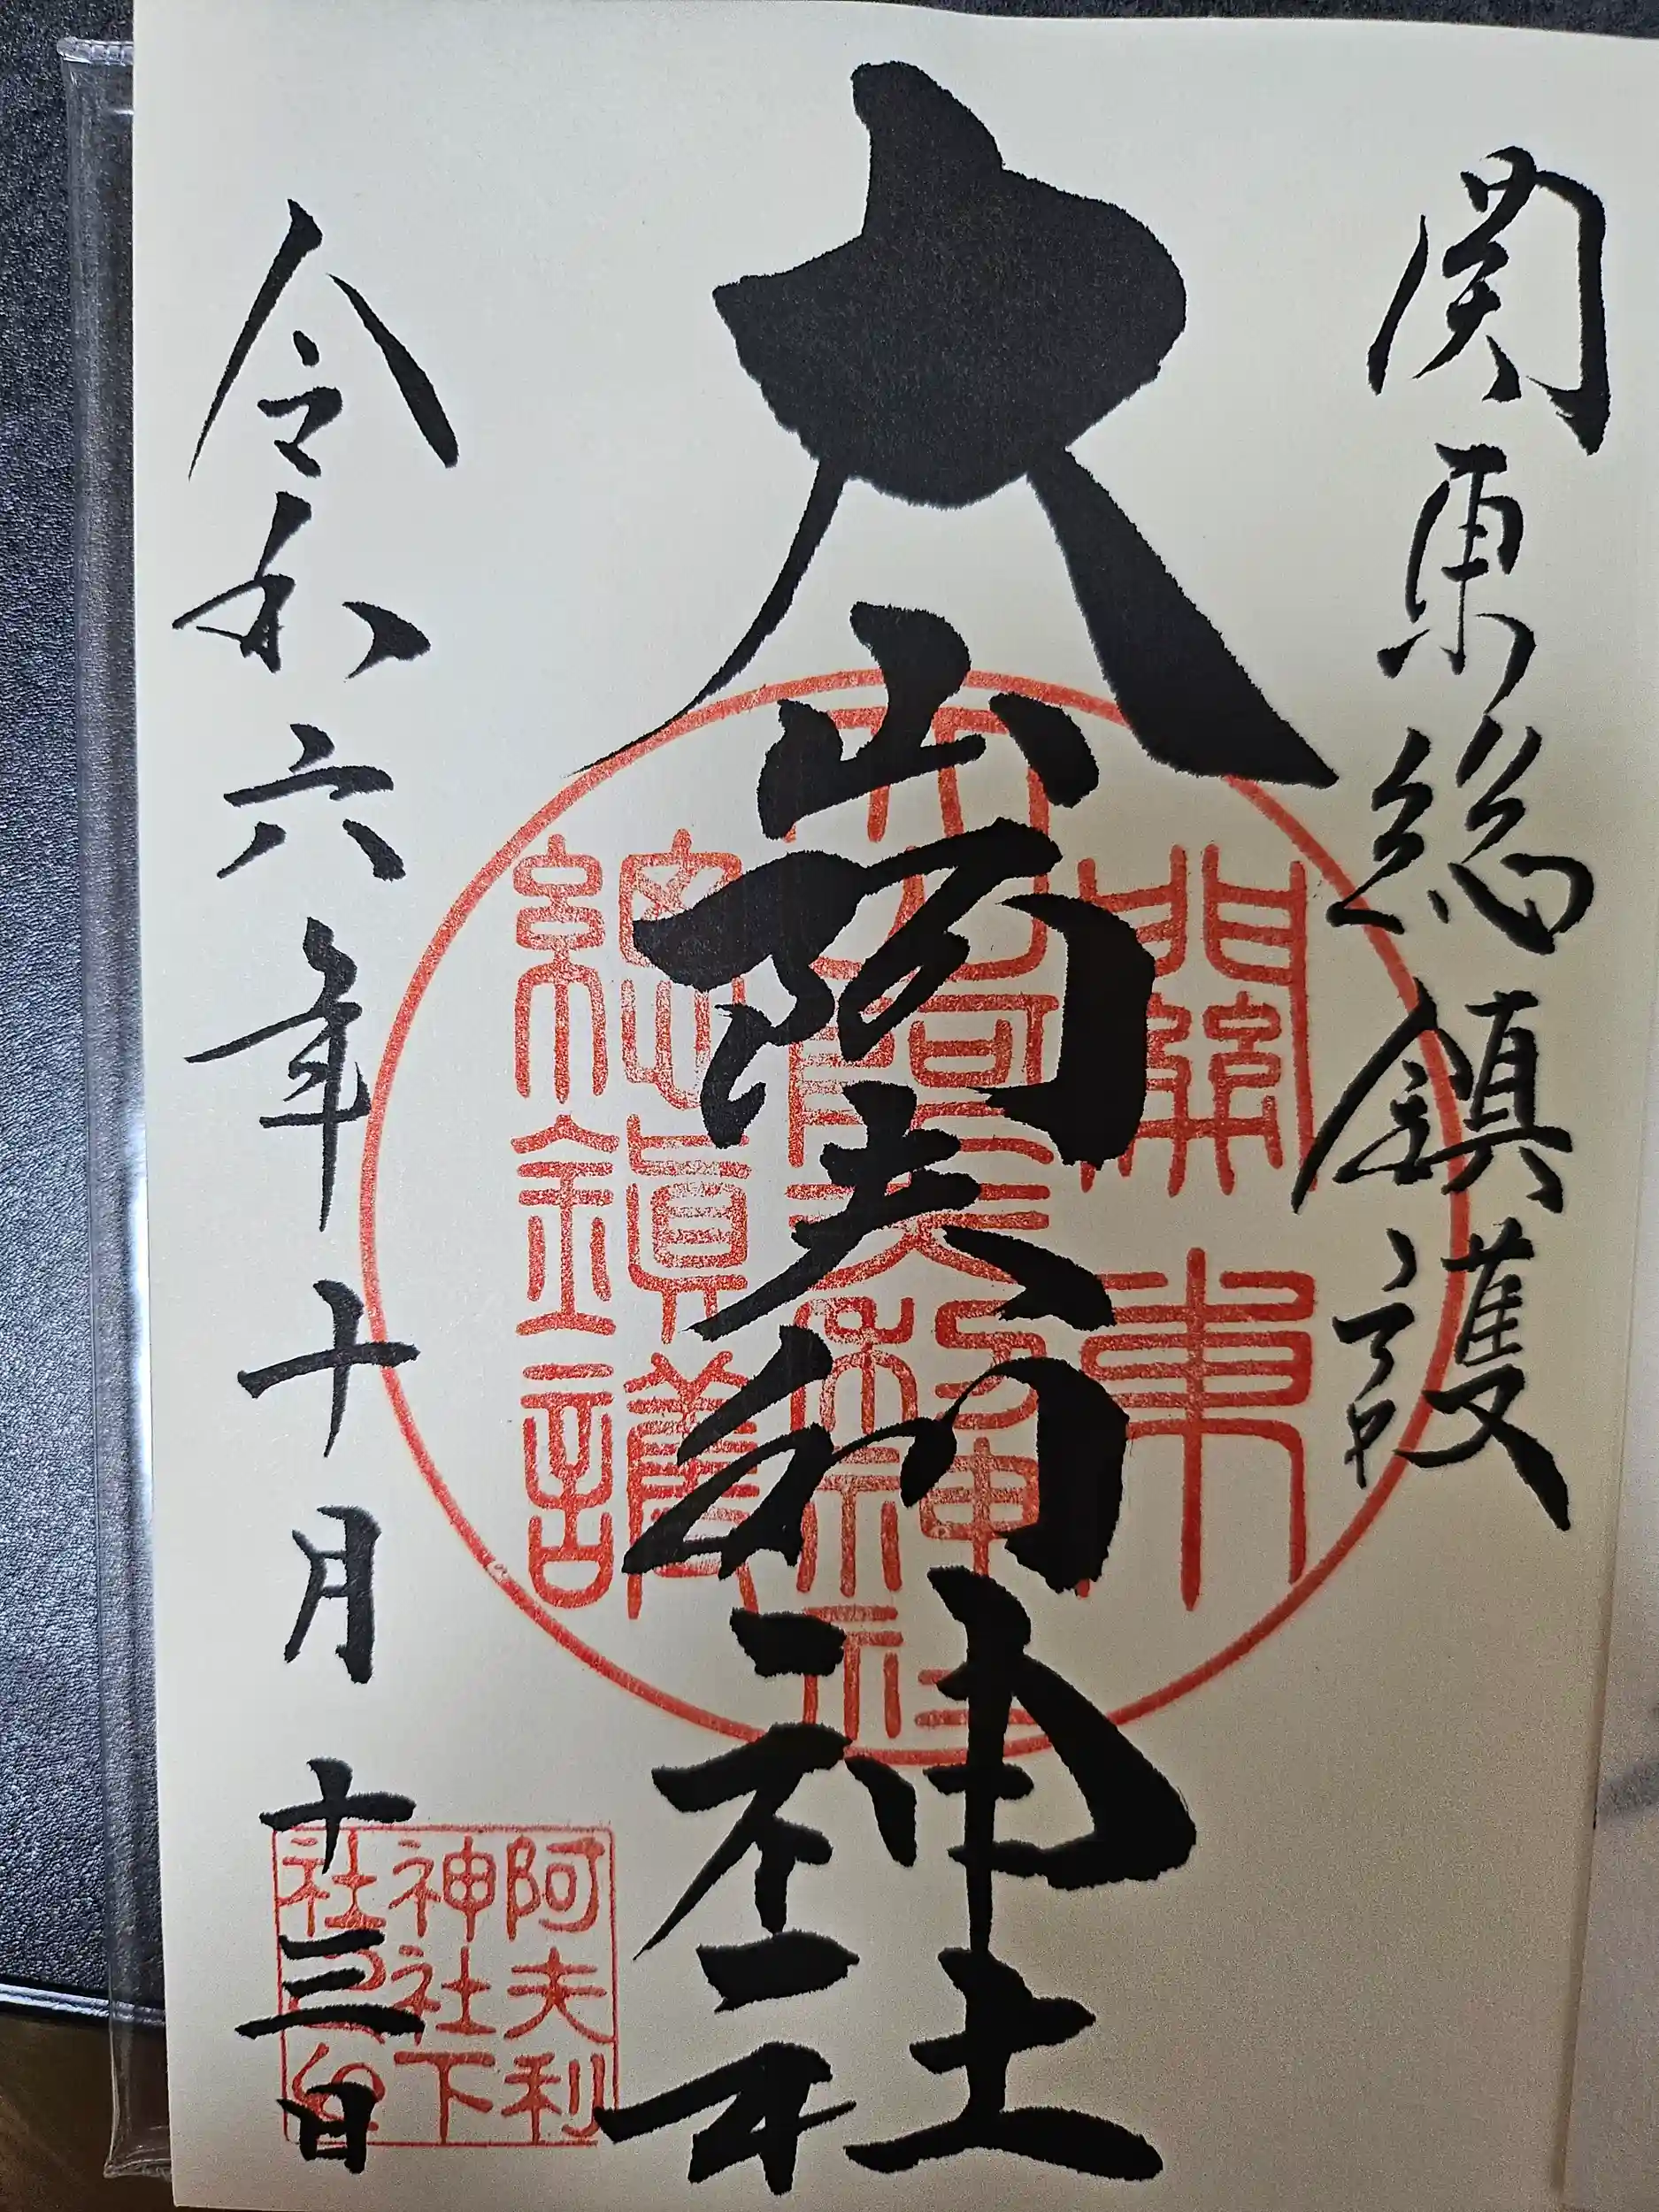 関東総鎮護
大山阿夫利神社
令和六年十月十三日
關東
大山阿夫利神社
總鎮護
阿夫利
神社下
社之印